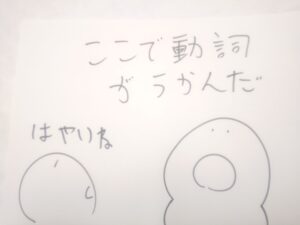 ここで動詞
がうかんだ
はやいね